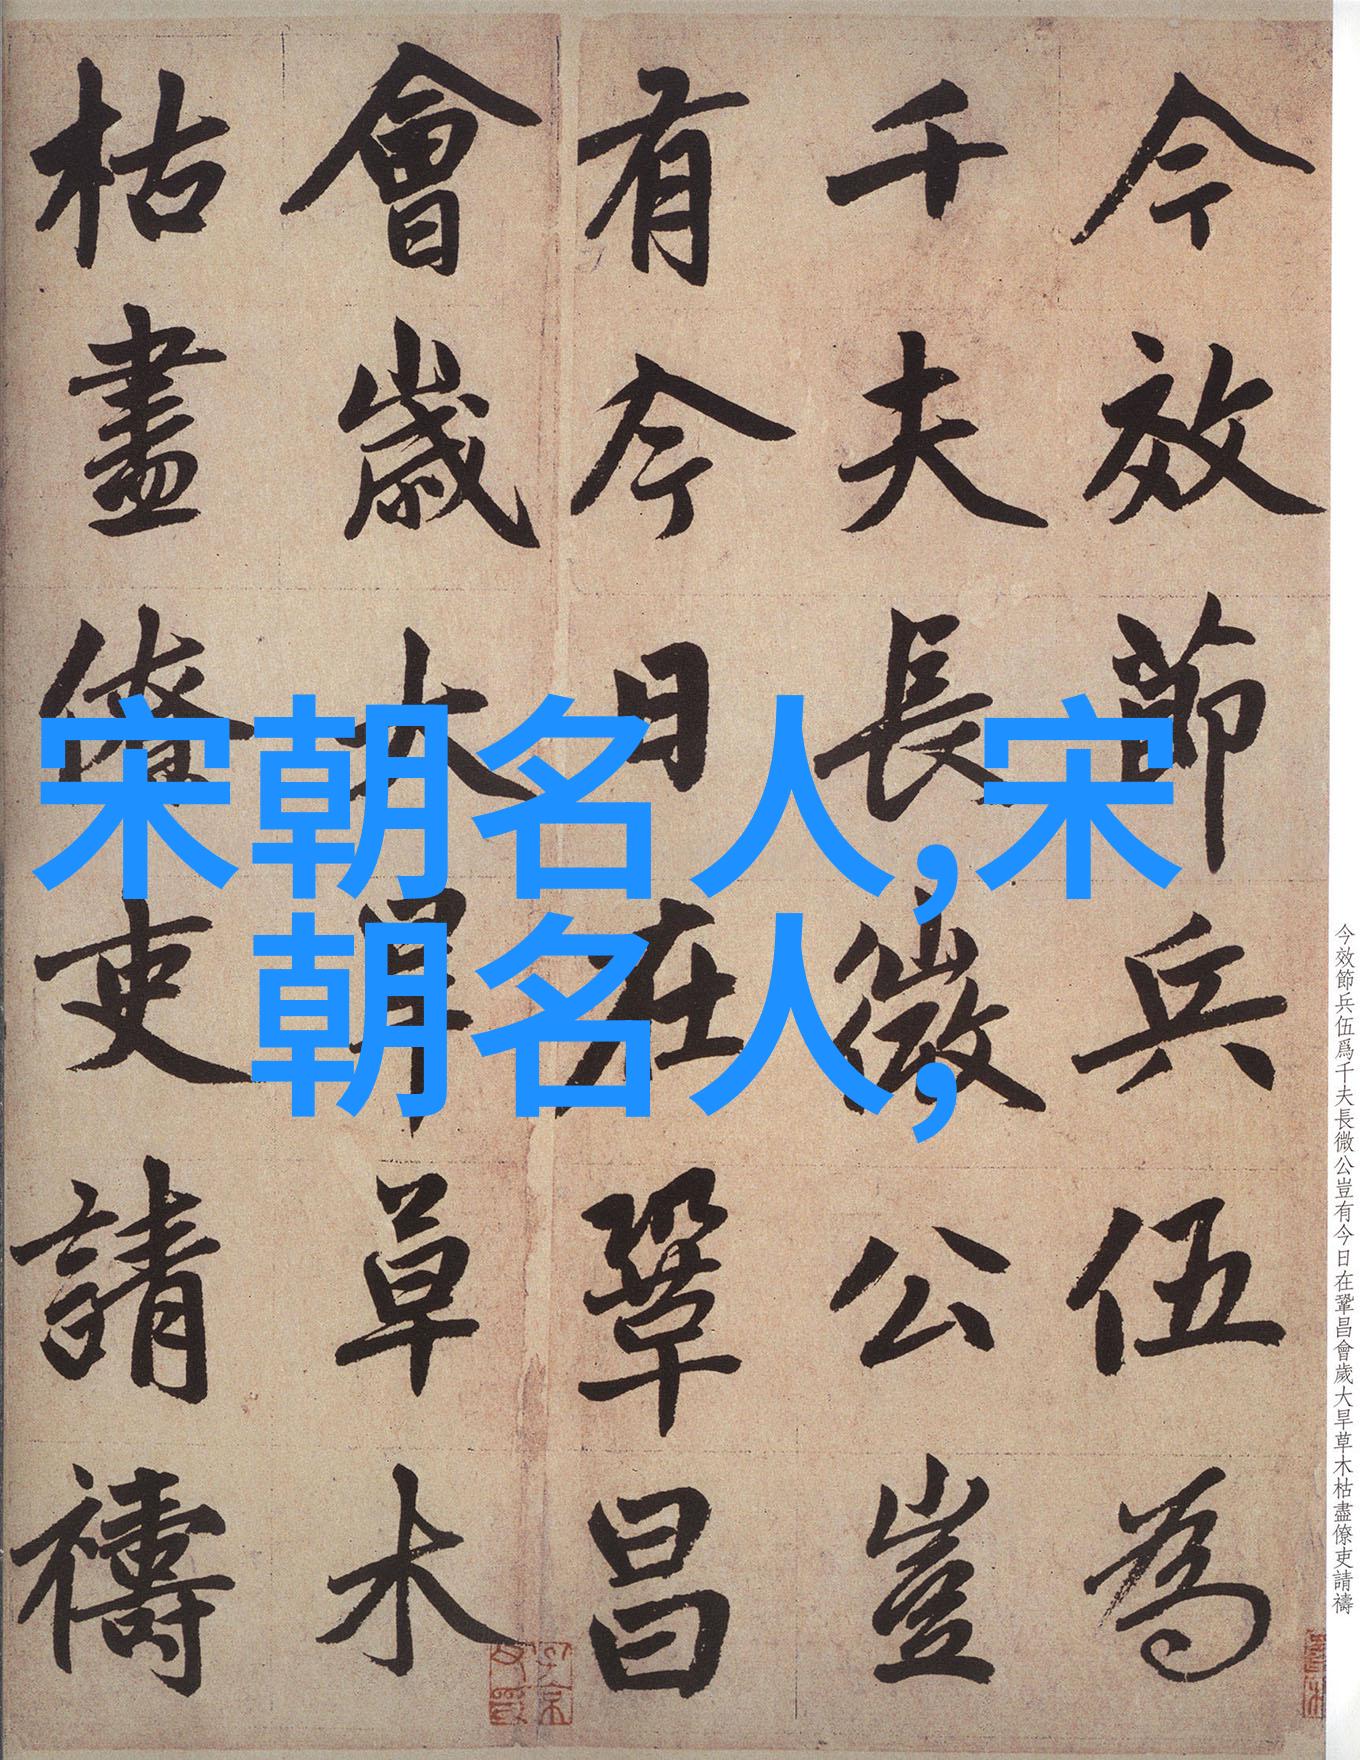 今效節兵伍為
千夫長微公豈
有今日在鞏昌
會歲大旱草木
枯盡僚吏請禱
宋朝名人,宋
朝名人,
今效節兵伍爲千夫長微公豈有今日在鞏昌會歲大旱草木枯盡僚吏請禱